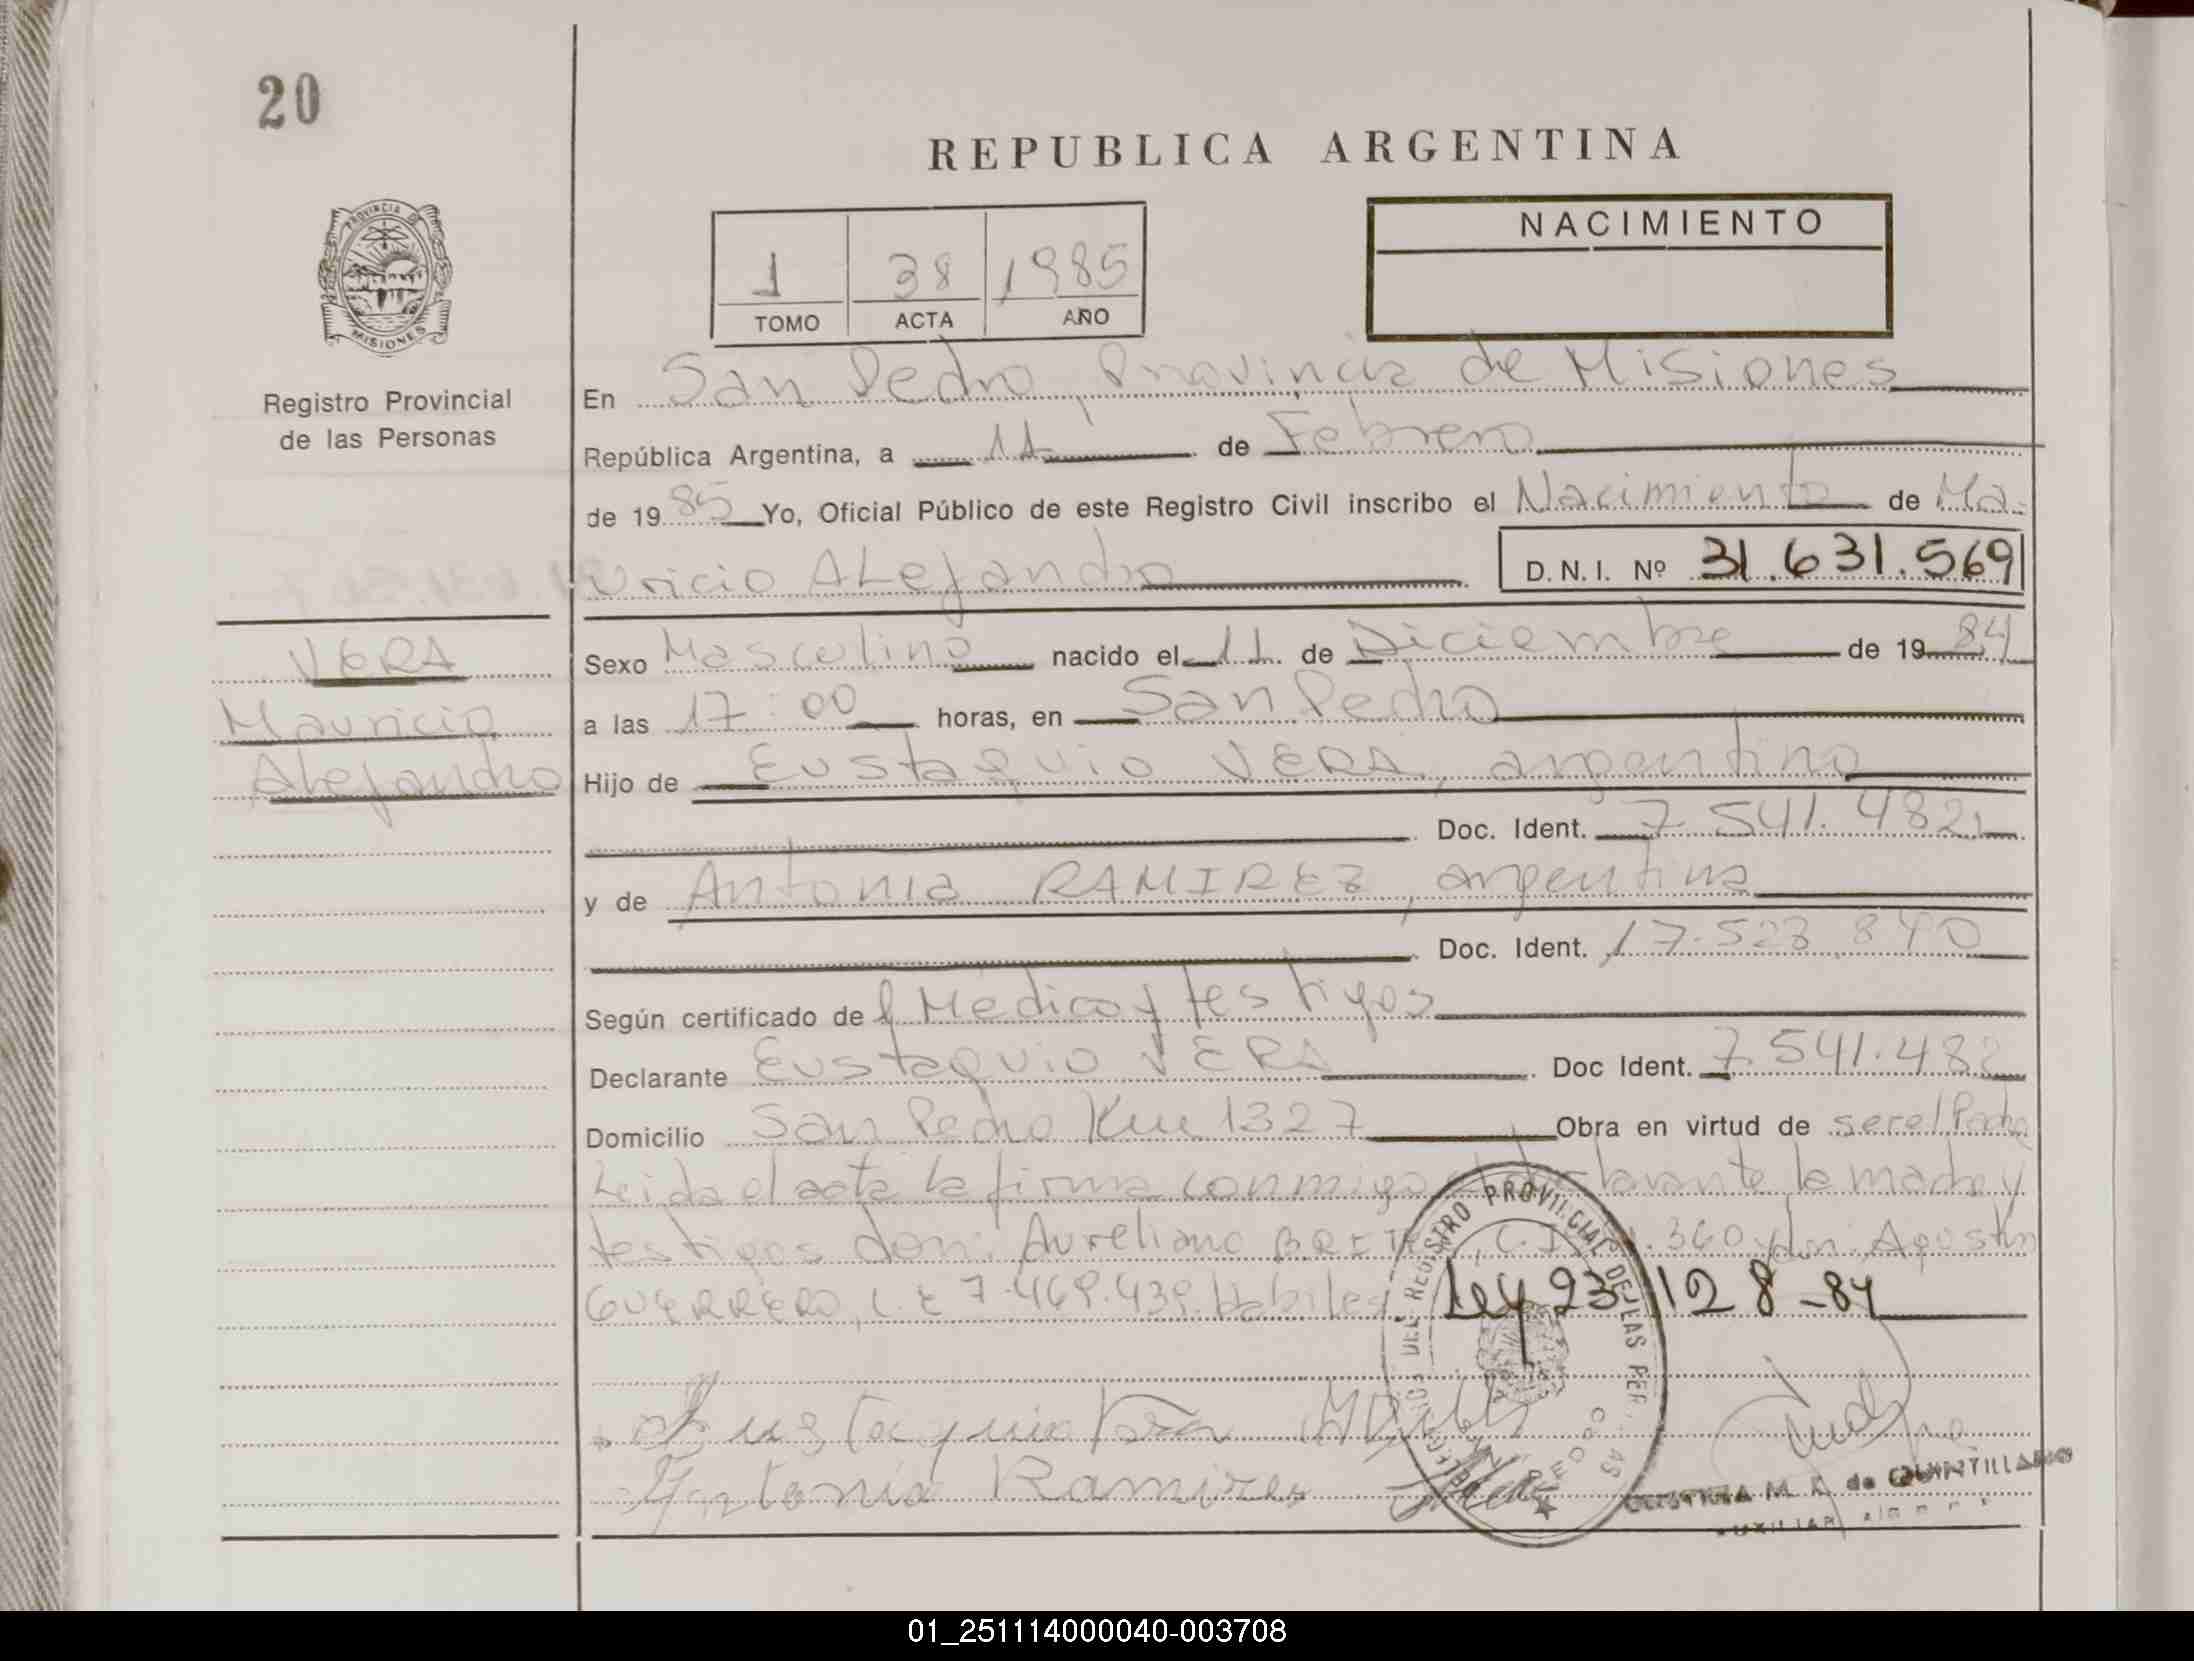 20
REPUBLICA ARGENTINA
PROVINCIA DE
MISIONES
Registro Provincial
de las Personas
1 38 1985
TOMO ACTA AÑO
NACIMIENTO
En San Pedro, Provincia de Misiones
República Argentina, a 11 de Febrero
de 1985 Yo, Oficial Público de este Registro Civil inscribo el Nacimiento de Ma-
uricio ALejandro D.N.I. Nº 31.631.569
VERA
Mauricio
Alejandro
Sexo Masculino nacido el 11 de Diciembre de 1984
a las 17:00 horas, en San Pedro
Hijo de Eustaquio VERA, argentino
Doc. Ident. 7.541.482
y de Antonia RAMIREZ, argentina
Doc. Ident. 17.523.840
Según certificado del Médico y testigos
Declarante Eustaquio VERA Doc Ident. 7.541.482
Domicilio San Pedro Km 1327 Obra en virtud de ser el Padre
Leida el acta la firma conmigo la madre y
testigos don: Aureliano 360 y don Agustin
GUERRERO, L E 7.469.439 Habiles Ley 23128-84
Eustaquio Vera
Antonia Ramires
M. de QUINTILLANO
AUXILIAR
01_251114000040-003708